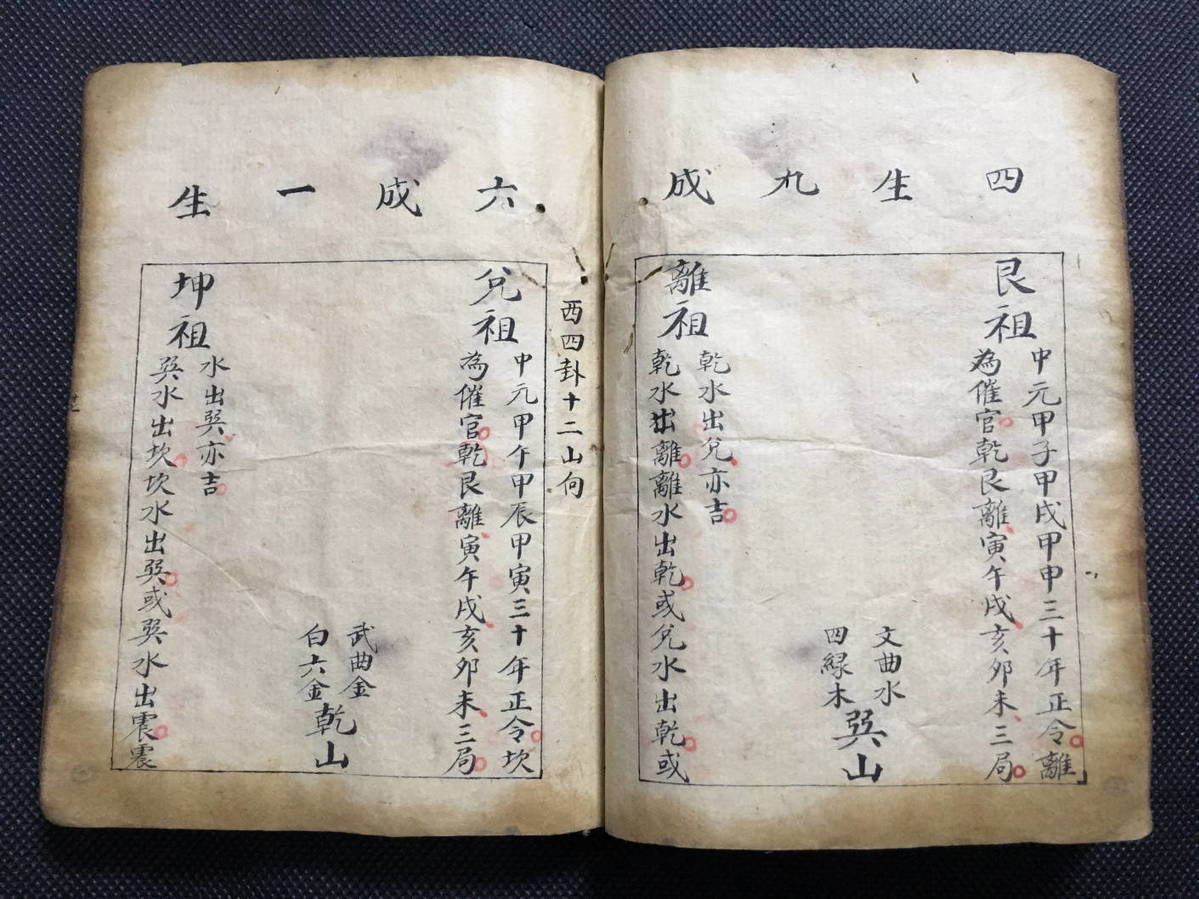 四生九成
艮祖
中元甲子甲戌甲申三十年正令離
為催官乾艮離寅午戌亥卯未三局
文曲水
四緑木
巽山
離祖
乾水出兌亦吉
乾水出離離水出乾或兌水出乾或
六成一生
西四卦十二山向
兌祖
中元甲午甲辰甲寅三十年正令坎
為催官乾艮離寅午戌亥卯未三局
武曲金
白六金
乾山
坤祖
水出巽亦吉
巽水出坎坎水出巽或巽水出震震